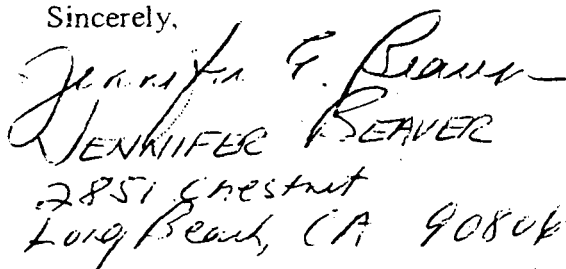 Sincerely,
Jennifer F. Beaver
JENNIFER BEAVER
2851 Chestnut
Long Beach, CA 90806